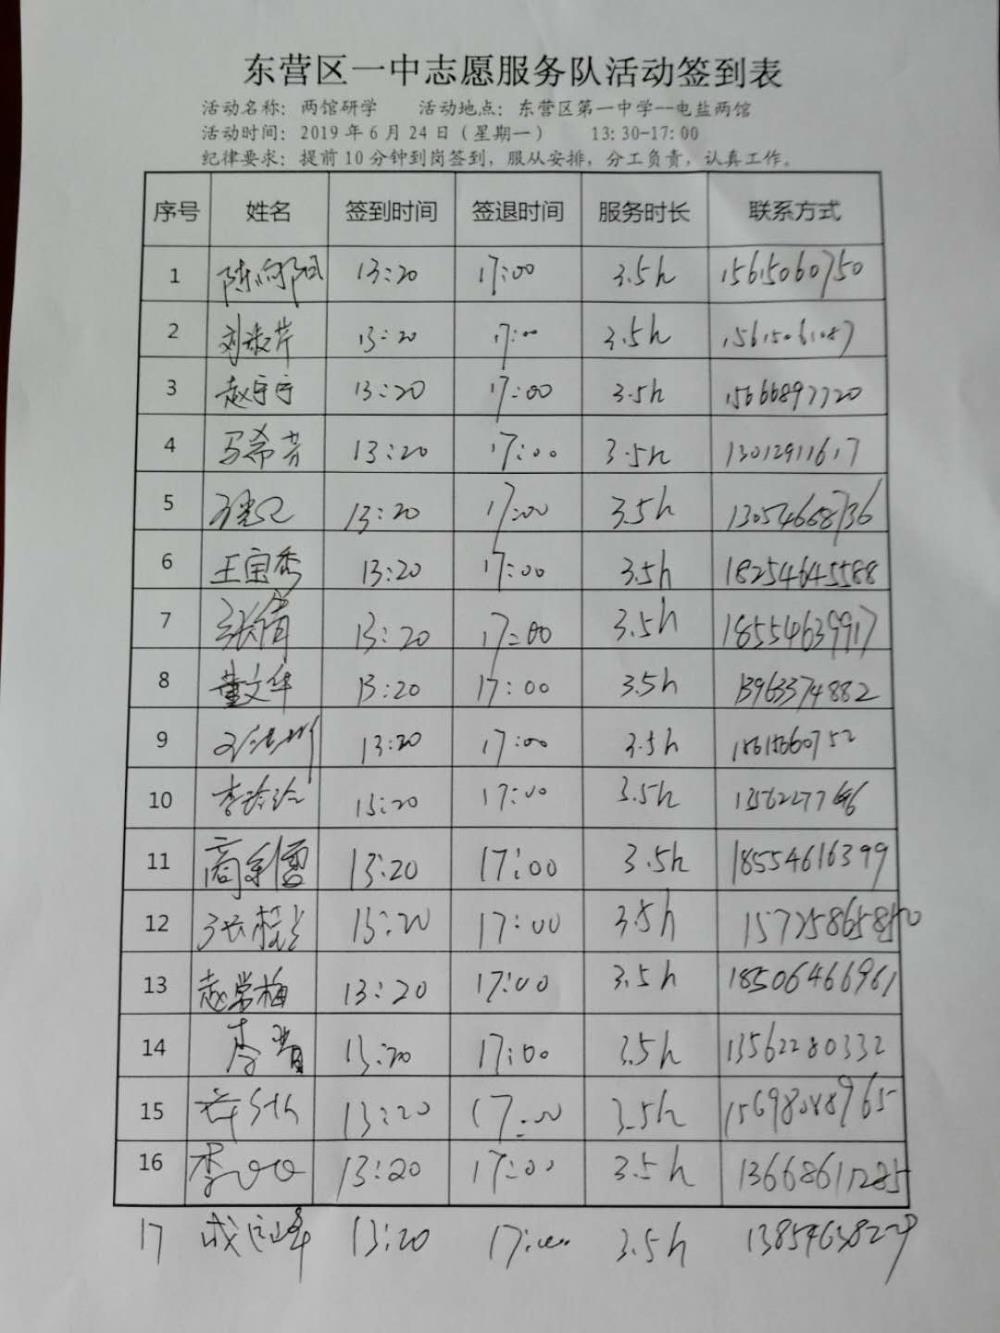 东营区一中志愿服务队活动签到表
活动名称：两馆研学 活动地点：东营区第一中学--电盐两馆
活动时间：2019年6月24日（星期一） 13:30-17:00
纪律要求：提前10分钟到岗签到，服从安排，分工负责，认真工作。
序号 姓名 签到时间 签退时间 服务时长 联系方式
1 陈向阳 13:20 17:00 3.5h 15615060750
2 刘淑芹 13:20 17:00 3.5h 15615061087
3 赵宁宁 13:20 17:00 3.5h 15666897720
4 马希芳 13:20 17:00 3.5h 13012911617
5 13:20 17:00 3.5h 13054668736
6 王宝秀 13:20 17:00 3.5h 18254645588
7 张倩 13:20 17:00 3.5h 18554639917
8 董文华 13:20 17:00 3.5h 13963374882
9 13:20 17:00 3.5h
10 李玲玲 13:20 17:00 3.5h
11 商彩雪 13:20 17:00 3.5h 18554616399
12 13:20 17:00 3.5h
13 赵常梅 13:20 17:00 3.5h 18506466961
14 李菁 13:20 17:00 3.5h 13562280332
15 13:20 17:00 3.5h
16 李 13:20 17:00 3.5h 13668611285
17 13:20 17:00 3.5h